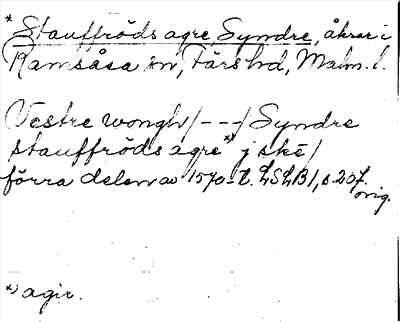 * Stauffröds agre, Syndre, åkrar i
Ramsåsa sn, Färs hd, Malm. l.
Vestre wongh /---/ Syndre
stauffröds agre *) j ske /
förra delen av 1570-t. LSLB1, s. 207.
orig.
*) agir.